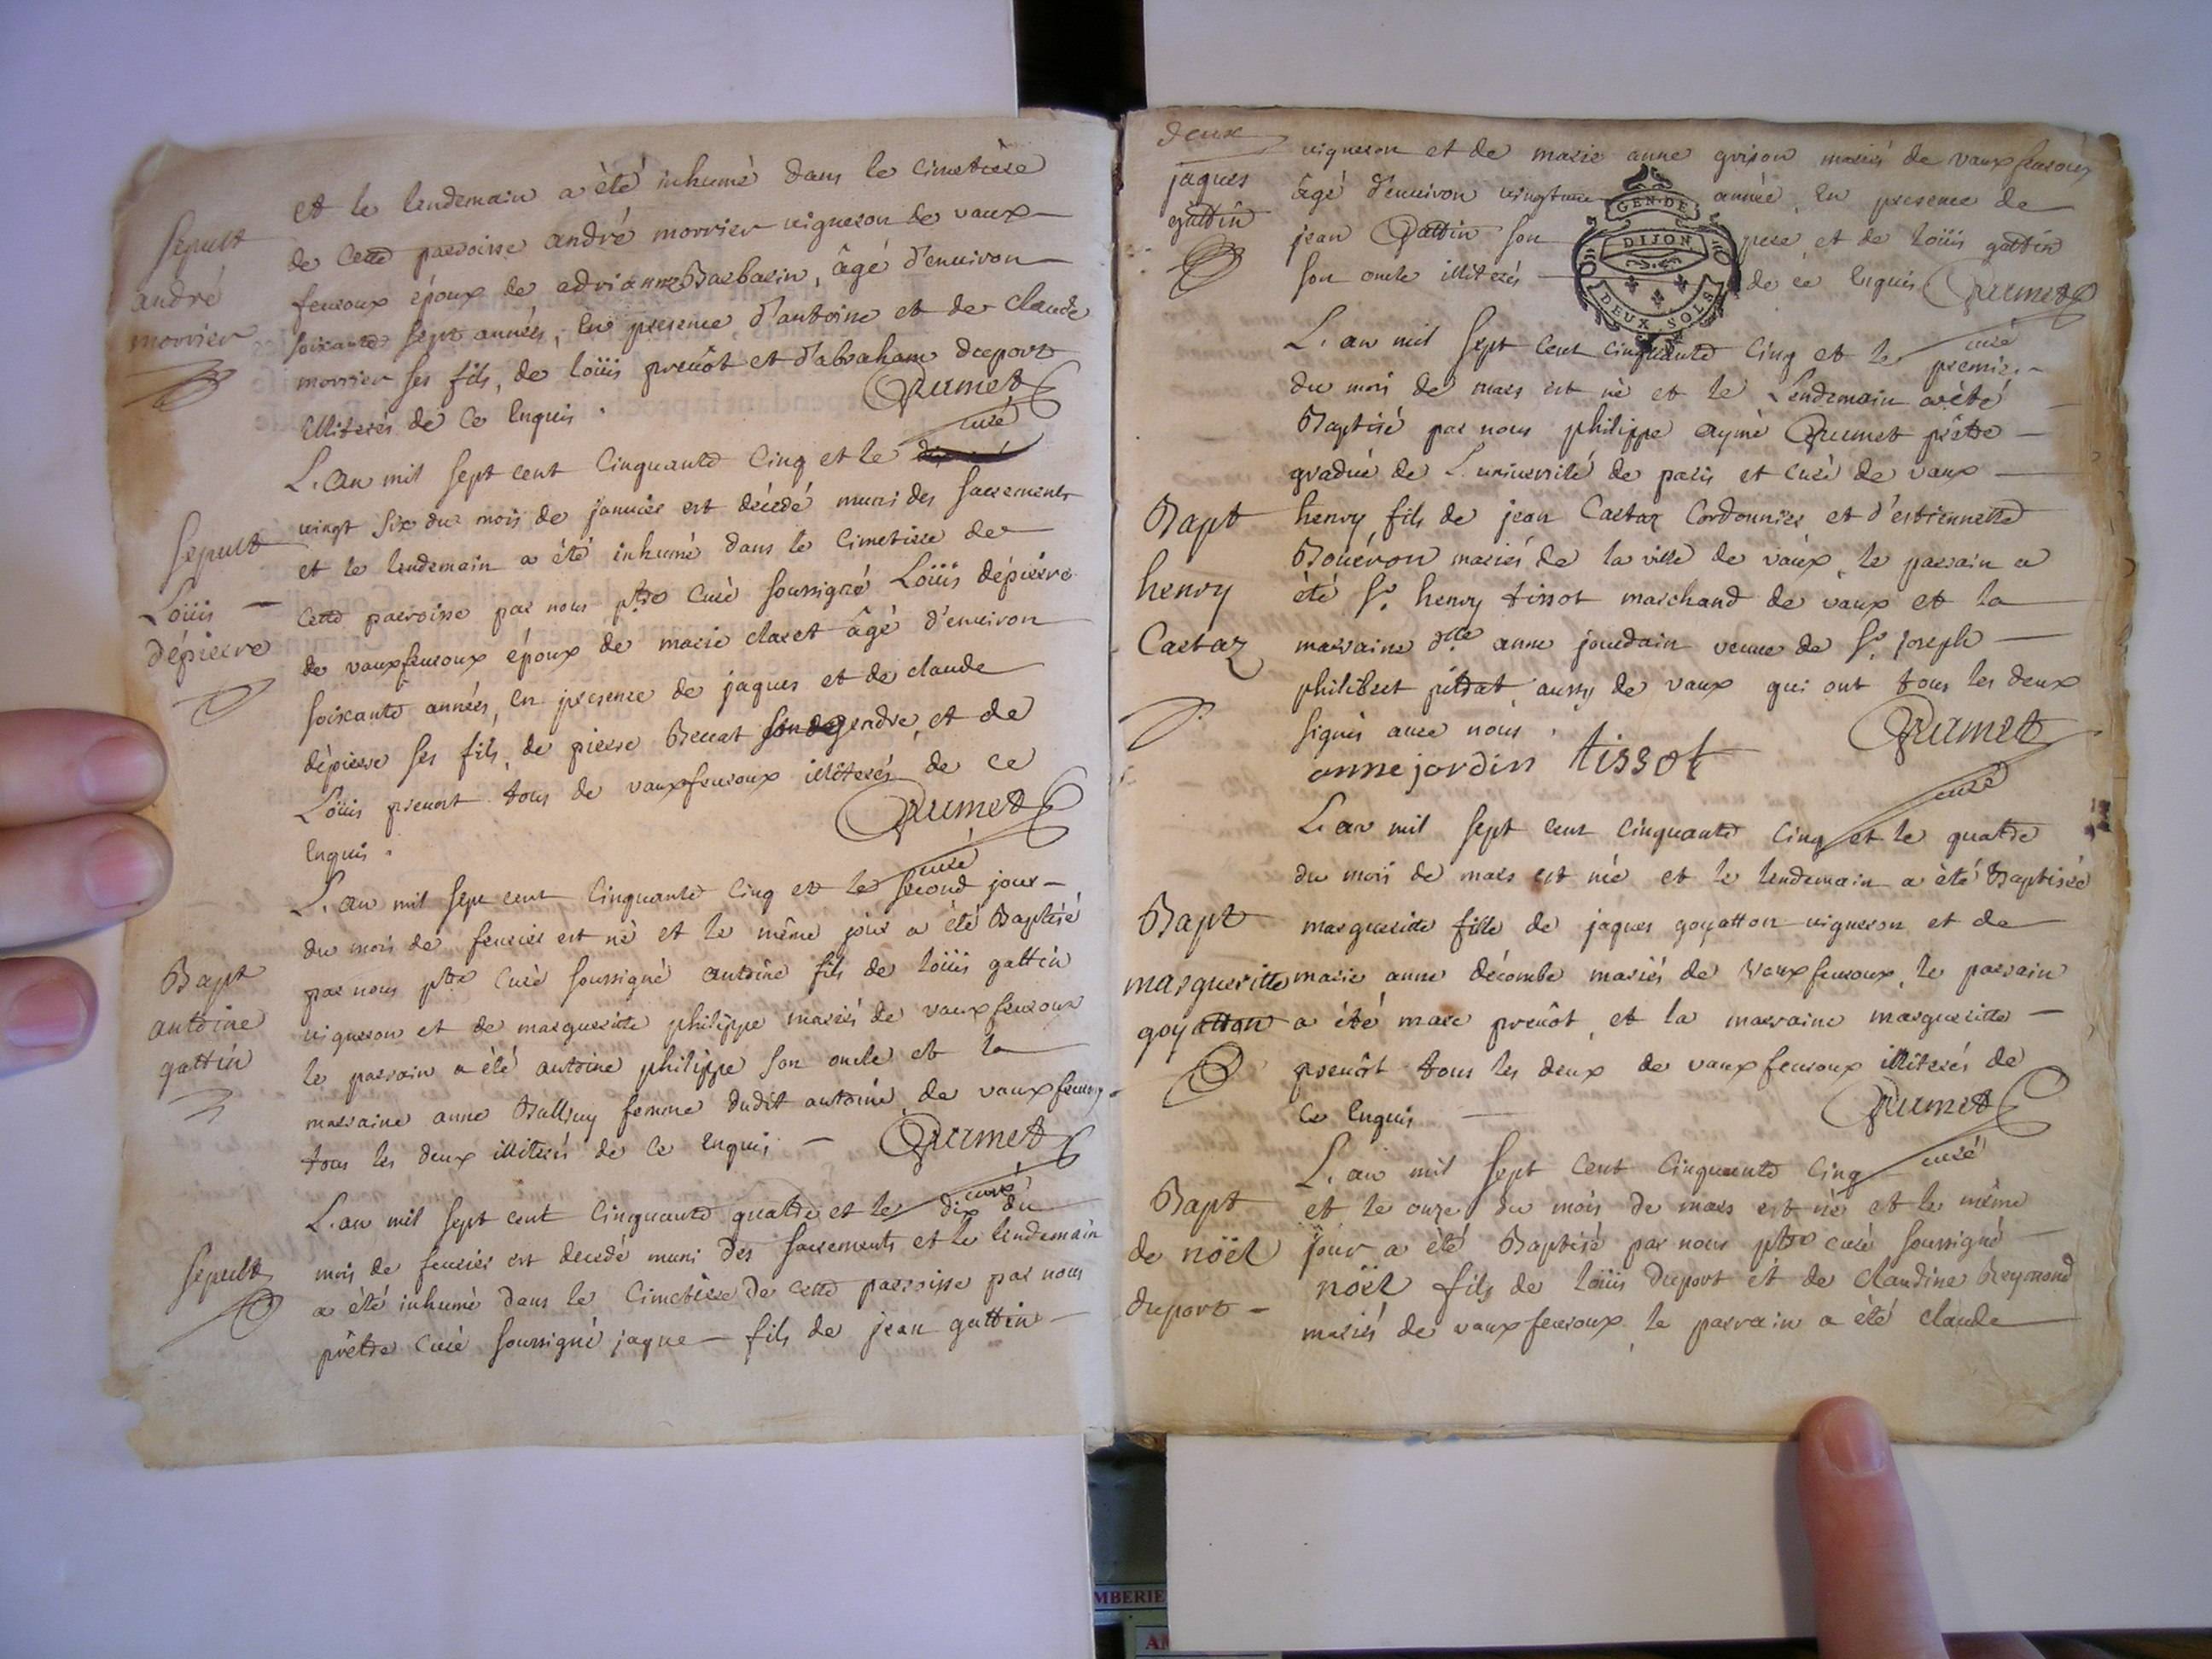 et le lendemain a èté inhumé dans le cimetière
Sepult
de cette parroisse andré morrier uigneron de vaux
andré
feuroux époux de adrianne Barbarin, âgé d'enuiron
morrier
soixante sept années, en presence, d'antoine et de claude
morrier ses fils, de loüis preuôt et d'abraham duport
illiterés de ce enquis.
Rumet
curé
L'an mil sept cent cinquante cinq et le
Sepult
uingt six du mois de januier est décedé muni des sacrements
et le lendemain a été inhumé dans le cimetiere de
Loüis
cette parroisse par nous ptre curé soussigné Loüis dépierre
dépierre
de vauxfeuroux époux de marie claret âgé d'enuiron
soixante années, en presence de jaques et de claude
dépierre ses fils, de pierre Berrat gendre, et de
Loüis preuost tous de vauxfeuroux illiterés de ce
enquis.
Rumet
curé
L'an mil sept cent cinquante cinq et le second jour
du mois de feurier est né et le même jour a été Baptisé
Bapt
par nous ptre curé soussigné antoine fils de loüis gattin
antoine
uigneron et de margueritte philippe mariés de vauxfeuroux
gattin
le parrain a été antoine philippe son oncle et la
marraine anne Bulliuy femme dudit antoine, de vauxfeuroux
tous les deux illiterés de ce enquis
Rumet
curé
L'an mil sept cent cinquante quatre et le dix du
mois de feurier est decedé muni des sacrements et le lendemain
Sepult
a été inhumé dans le cimetiere de cette parroisse par nous
prêtre curé soussigné jaque fils de jean gattin
deux
uigneron et de marie anne grison mariés de vauxfeuroux
jaques
âgé d'enuiron uingt une année, en presence de
gattin
jean Gattin son pere et de loüis gattin
son oncle illiterés de ce enquis
Rumet
curé
GEN. DE
DIJON
DEUX . SOLS
L'an mil sept cent cinquante cinq et le premier
du mois de mars est né et le Lendemain a été
Baptisé par nous philippe aymé Rumet prêtre
gradué de L'uniuersité de paris et curé de vaux
Bapt
henry fils de jean Cartaz Cordonnier et d'estiennette
Bouéron mariés de la ville de vaux, le parrain a
henry
été Sr. henry tissot marchand de vaux et la
Cartaz
marraine dlle anne jourdain veuue de Sr. joseph
philibert aussy de vaux qui ont tous les deux
signés auec nous.
Rumet
curé
anne jordin tissot
L'an mil sept cent cinquante cinq et le quatre
du mois de mars est née et le lendemain a été Baptisée
Bapt
margueritte fille de jaques goyatton uigneron et de
margueritte
marie anne décombe mariés de vauxfeuroux, le parrain
goyatton
a été marc preuôt, et la marraine margueritte
preuôt tous les deux de vauxfeuroux illiterés de
ce enquis
Rumet
curé
L'an mil sept cent cinquante cinq
Bapt
et le onze du mois de mars est né et le même
de nöel
jour a été Baptisé par nous ptre curé soussigné
nöel fils de loüis duport et de claudine Reymond
duport
mariés de vauxfeuroux, le parrain a été claude
MBERIE